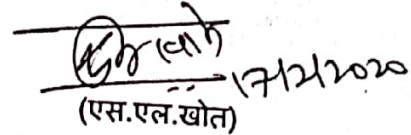 17/2/2020
(एस.एल.खोत)